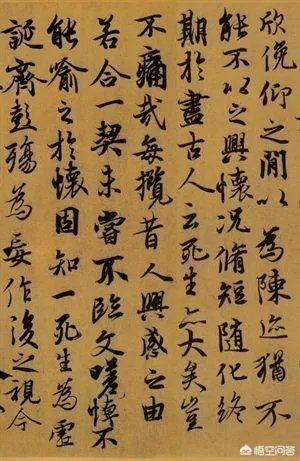 欣俛仰之閒以為陳迹猶不
能不以之興懷況脩短隨化終
期於盡古人云死生亦大矣豈
不痛哉每攬昔人興感之由
若合一契未嘗不臨文嗟悼不
能喻之於懷固知一死生為虛
誕齊彭殤為妄作後之視今
悟空问答